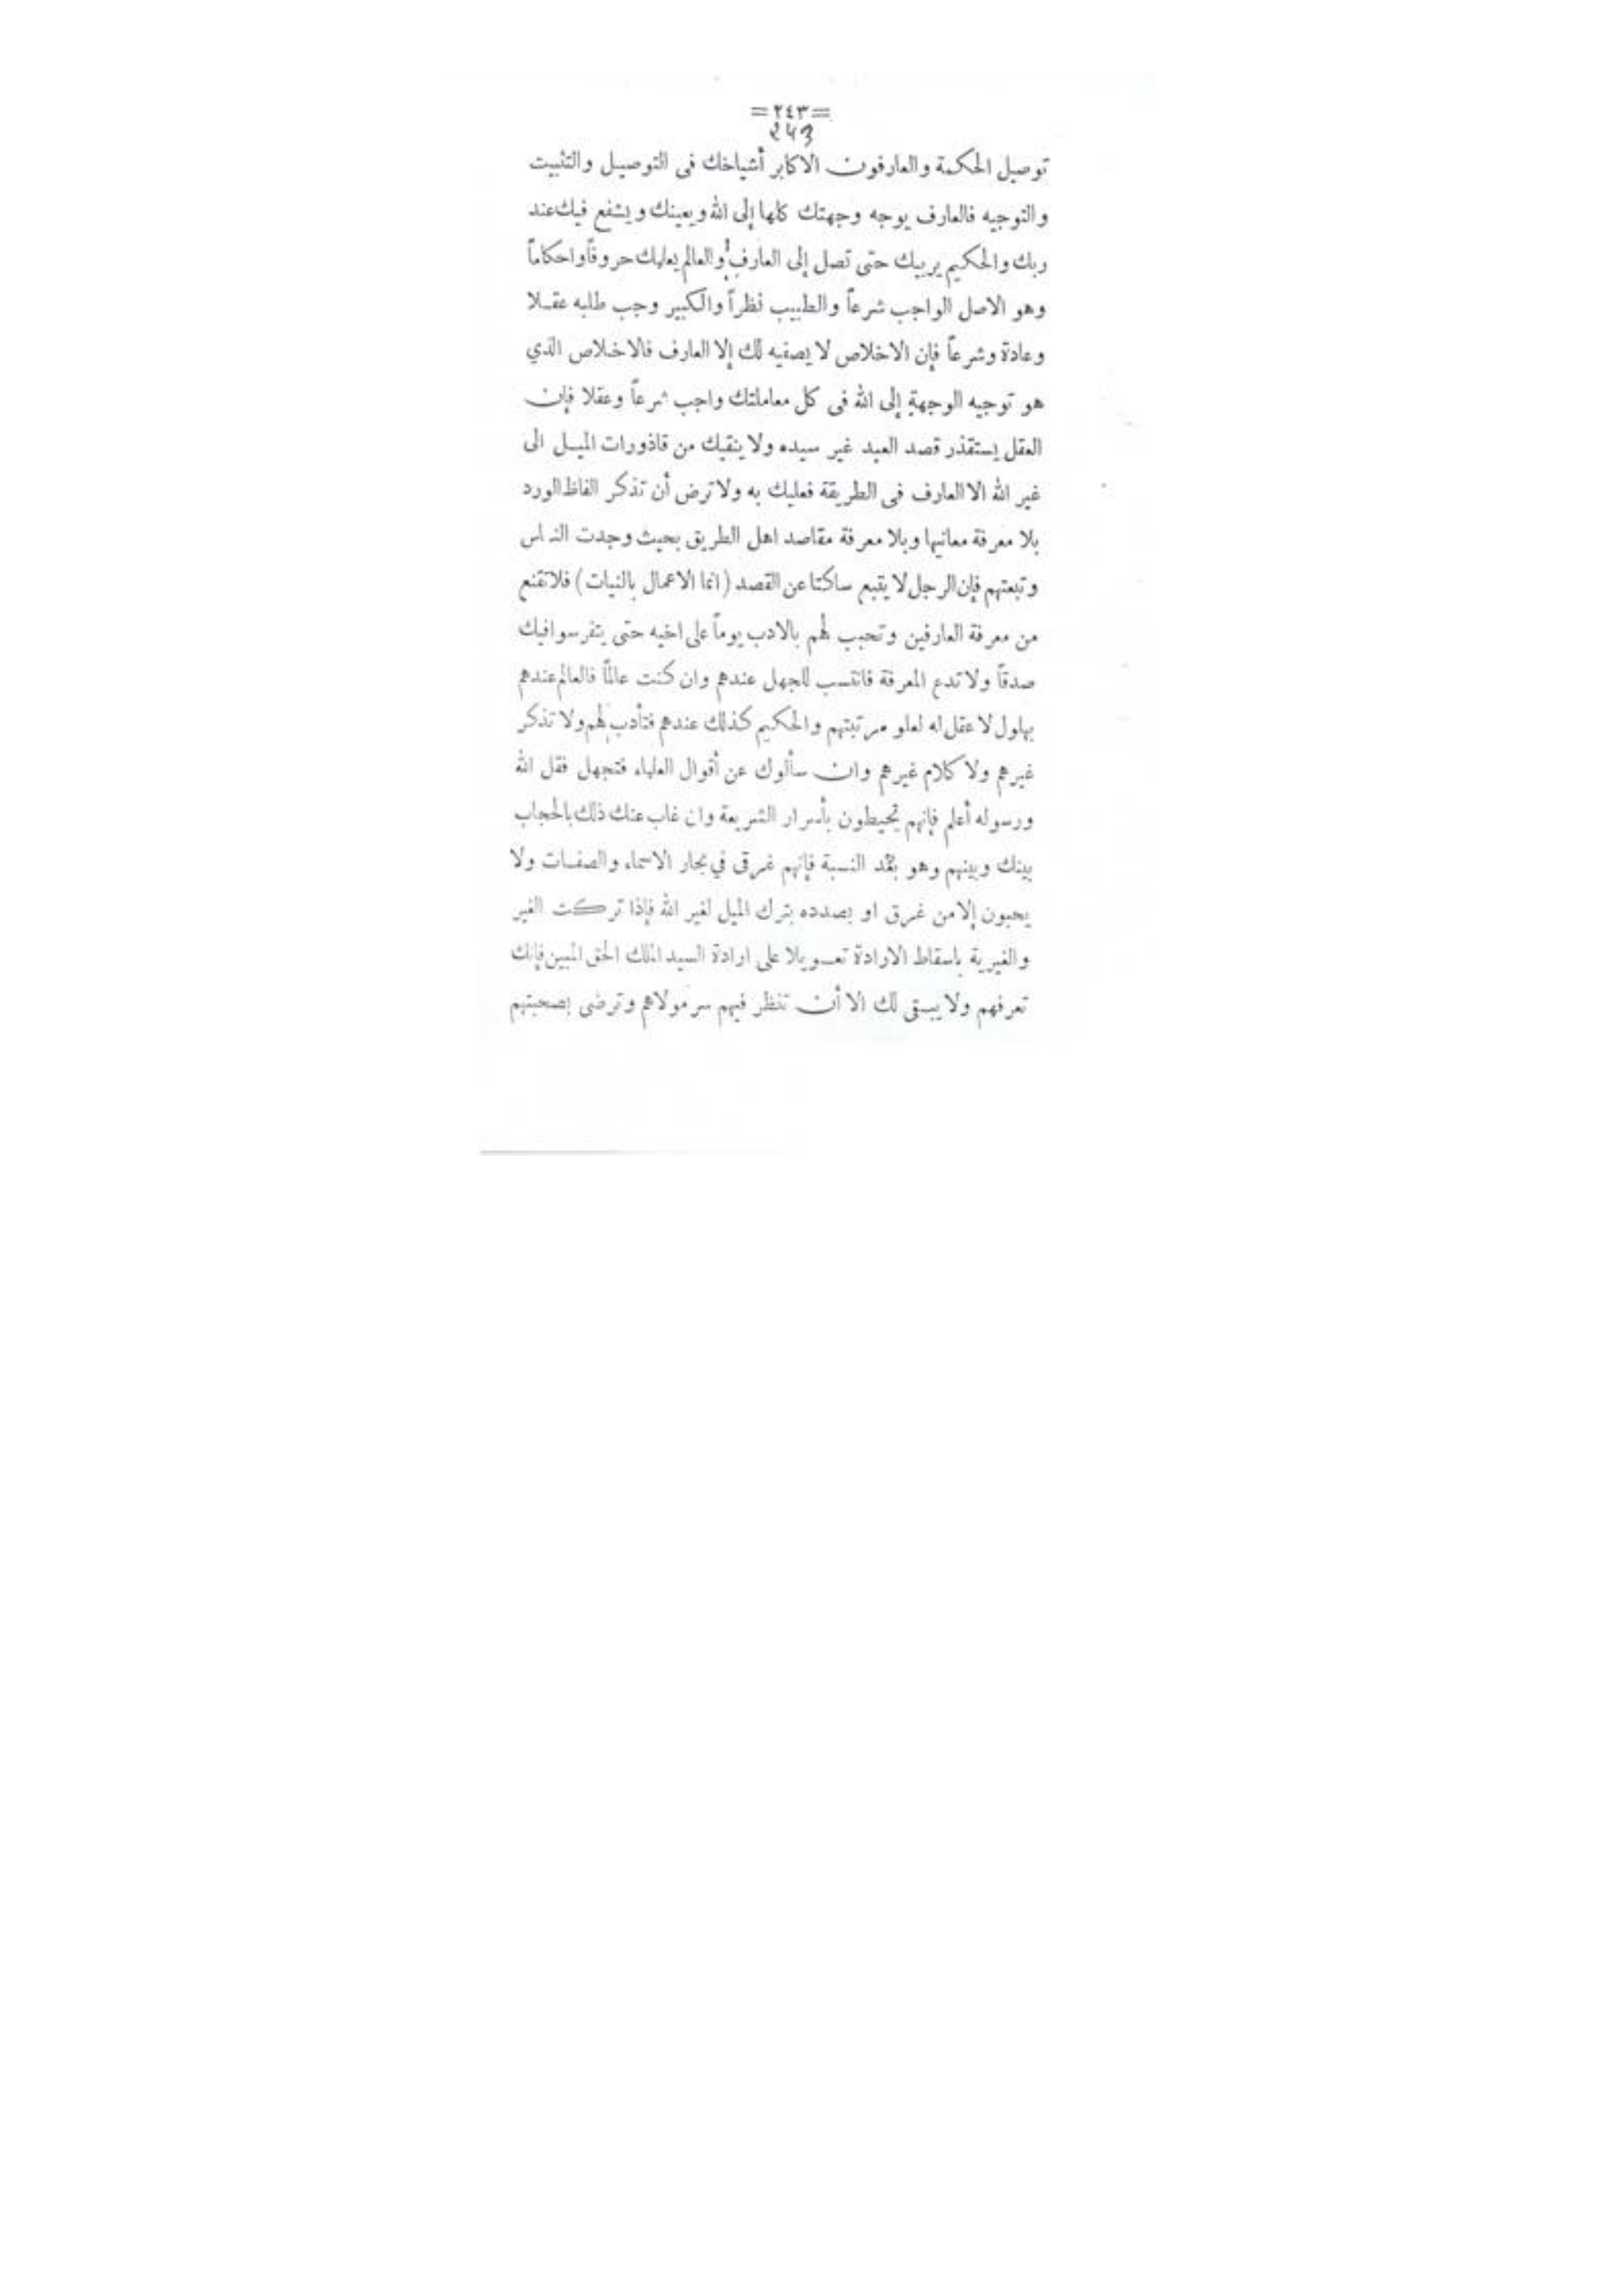 =٢٤٣=
243
توصيل الحكمة والعارفون الاكابر أشياخك فى التوصيل والتثبيت
والتوجيه فالعارف يوجه وجهتك كلها إلى الله ويعينك ويشفع فيك عند
ربك والحكيم يربيك حتى تصل إلى العارف والعالم يعليك حروفاً واحكاماً
وهو الاصل الواجب شرعاً والطبيب نظراً والكبير وجب طلبه عقلا
وعادة وشرعاً فإن الاخلاص لا يصفيه لك إلا العارف فالاخلاص الذي
هو توجيه الوجهة إلى الله فى كل معاملتك واجب شرعاً وعقلا فإن
العقل يستقذر قصد العبد غير سيده ولا ينقيك من قاذورات الميل الى
غير الله الا العارف فى الطريقة فعليك به ولا ترض أن تذكر الفاظ الورد
بلا معرفة معانيها وبلا معرفة مقاصد اهل الطريق بحيث وجدت الناس
وتبعتهم فإن الرجل لا يتبع ساكتا عن القصد (انما الاعمال بالنيات) فلا تقنع
من معرفة العارفين وتحبب لهم بالادب يوماً على اخيه حتى يتفرسوا فيك
صدقاً ولا تدع المعرفة فانتسب للجهل عندهم وان كنت عالماً فالعالم عندهم
بهلول لا عقل له لعلو مرتبتهم والحكيم كذلك عندهم فتأدب لهم ولا تذكر
غيرهم ولا كلام غيرهم وان سألوك عن أقوال العلماء فتجهل فقل الله
ورسوله أعلم فإنهم يحيطون بأسرار الشريعة وان غاب عنك ذلك بالحجاب
بينك وبينهم وهو بعد النسبة فإنهم غرقى في بحار الاسماء والصفات ولا
يحبون إلا من غرق او بصدده بترك الميل لغير الله فإذا تركت الغير
والغيرية باسقاط الارادة تعويلا على ارادة السيد الملك الحق المبين فإنك
تعرفهم ولا يبقى لك الا أن تنظر فيهم سر مولاهم وترضى بصحبتهم